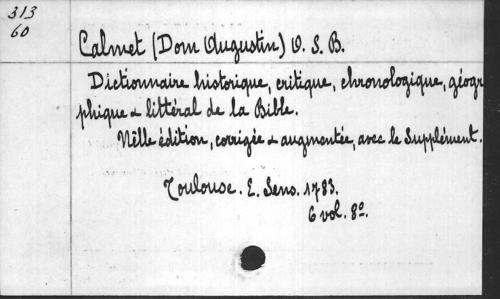 313
60
Calmet (Dom Augustin) O. S. B.
Dictionnaire historique, critique, chronologique, géogra
phique & littéral de la Bible.
Nêlle édition, corrigée & augmentée, avec le Supplément.
Toulouse. E. Sens. 1783.
6 vol. 8º.